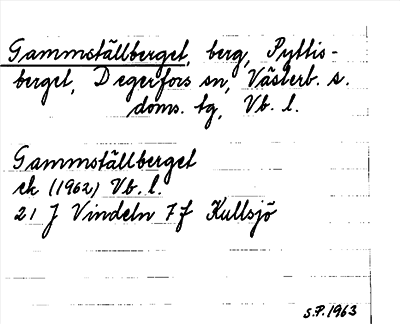 Gammställberget, berg, Pyttis-
berget, Degerfors sn, Västerb. s.
doms. tg, Vb. l.
Gammställberget
ek (1962) Vb. l.
21 J Vindeln 7f Kullsjö
S.P. 1963